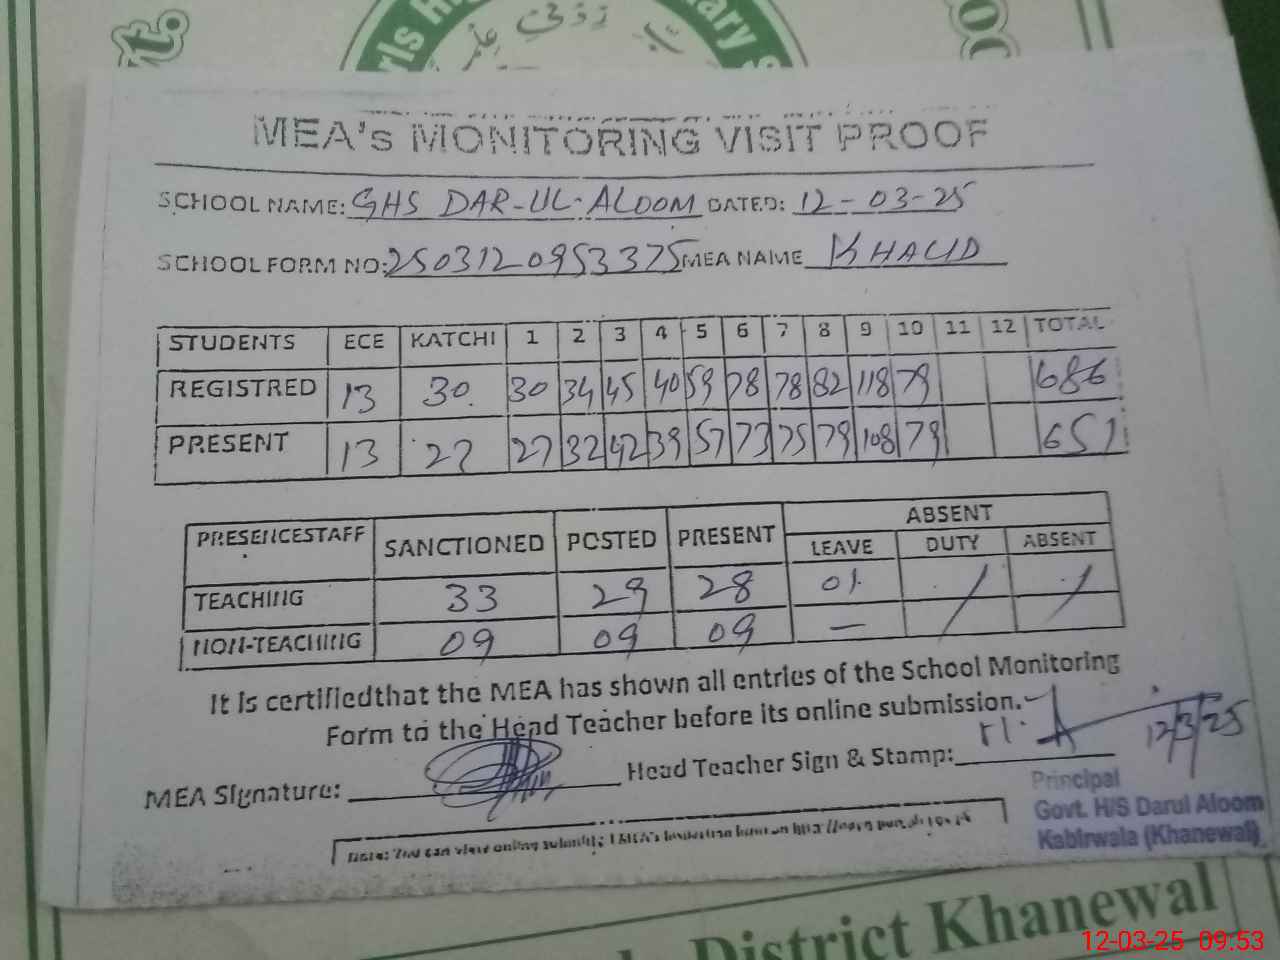 rt.
rls Hi
ary S
MEA's MONITORING VISIT PROOF
SCHOOL NAME: GHS DAR-UL-ALOOM DATED: 12-03-25
SCHOOL FORM NO: 2503120953375 MEA NAME KHALID
STUDENTS ECE KATCHI 1 2 3 4 5 6 7 8 9 10 11 12 TOTAL
REGISTRED 13 30 30 34 45 40 59 78 78 82 118 79 686
PRESENT 13 27 27 32 42 39 57 73 75 79 108 79 651
PRESENCESTAFF SANCTIONED POSTED PRESENT ABSENT
LEAVE DUTY ABSENT
TEACHING 33 29 28 01 / /
NON-TEACHING 09 09 09 —
It is certifiedthat the MEA has shown all entries of the School Monitoring
Form to the Head Teacher before its online submission.
12/3/25
MEA Signature: Head Teacher Sign & Stamp:
Principal
Govt. H/S Darul Aloom
Kabirwala (Khanewal)
Note: You can view online
District Khanewal
12-03-25 09:53